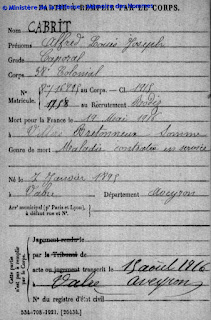 PARTIE À REMPLIR PAR LE CORPS.
Nom CABRIT
Prénoms Alfred Louis Joseph
Grade Caporal
Corps Colonial
N° au Corps. — Cl. 1915
Matricule. 1758 au Recrutement Rodez
Mort pour la France le 19 Mai 1916
à Villers Bretonneux Somme
Genre de mort Maladie contractée en service
Né le 7 Janvier 1895
à Vabre Département Aveyron
Arrt municipal (pr Paris et Lyon),
à défaut rue et N°.
Cette partie
n'est pas à remplir
par le Corps.
Jugement rendu le
par le Tribunal de
acte ou jugement transcrit le 15 août 1916
à Vabre Aveyron
N° du registre d'état civil
534-708-1921. [26434.]